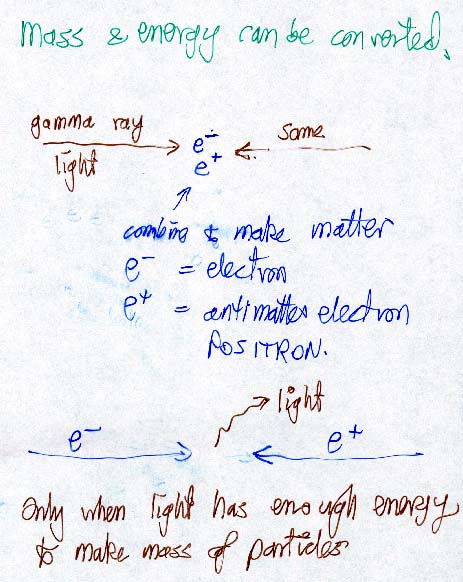 Mass & energy can be converted.
gamma ray
light
e⁻
e⁺
same
combine to make matter
e⁻ = electron
e⁺ = antimatter electron
POSITRON.
light
e⁻
e⁺
Only when light has enough energy
to make mass of particles